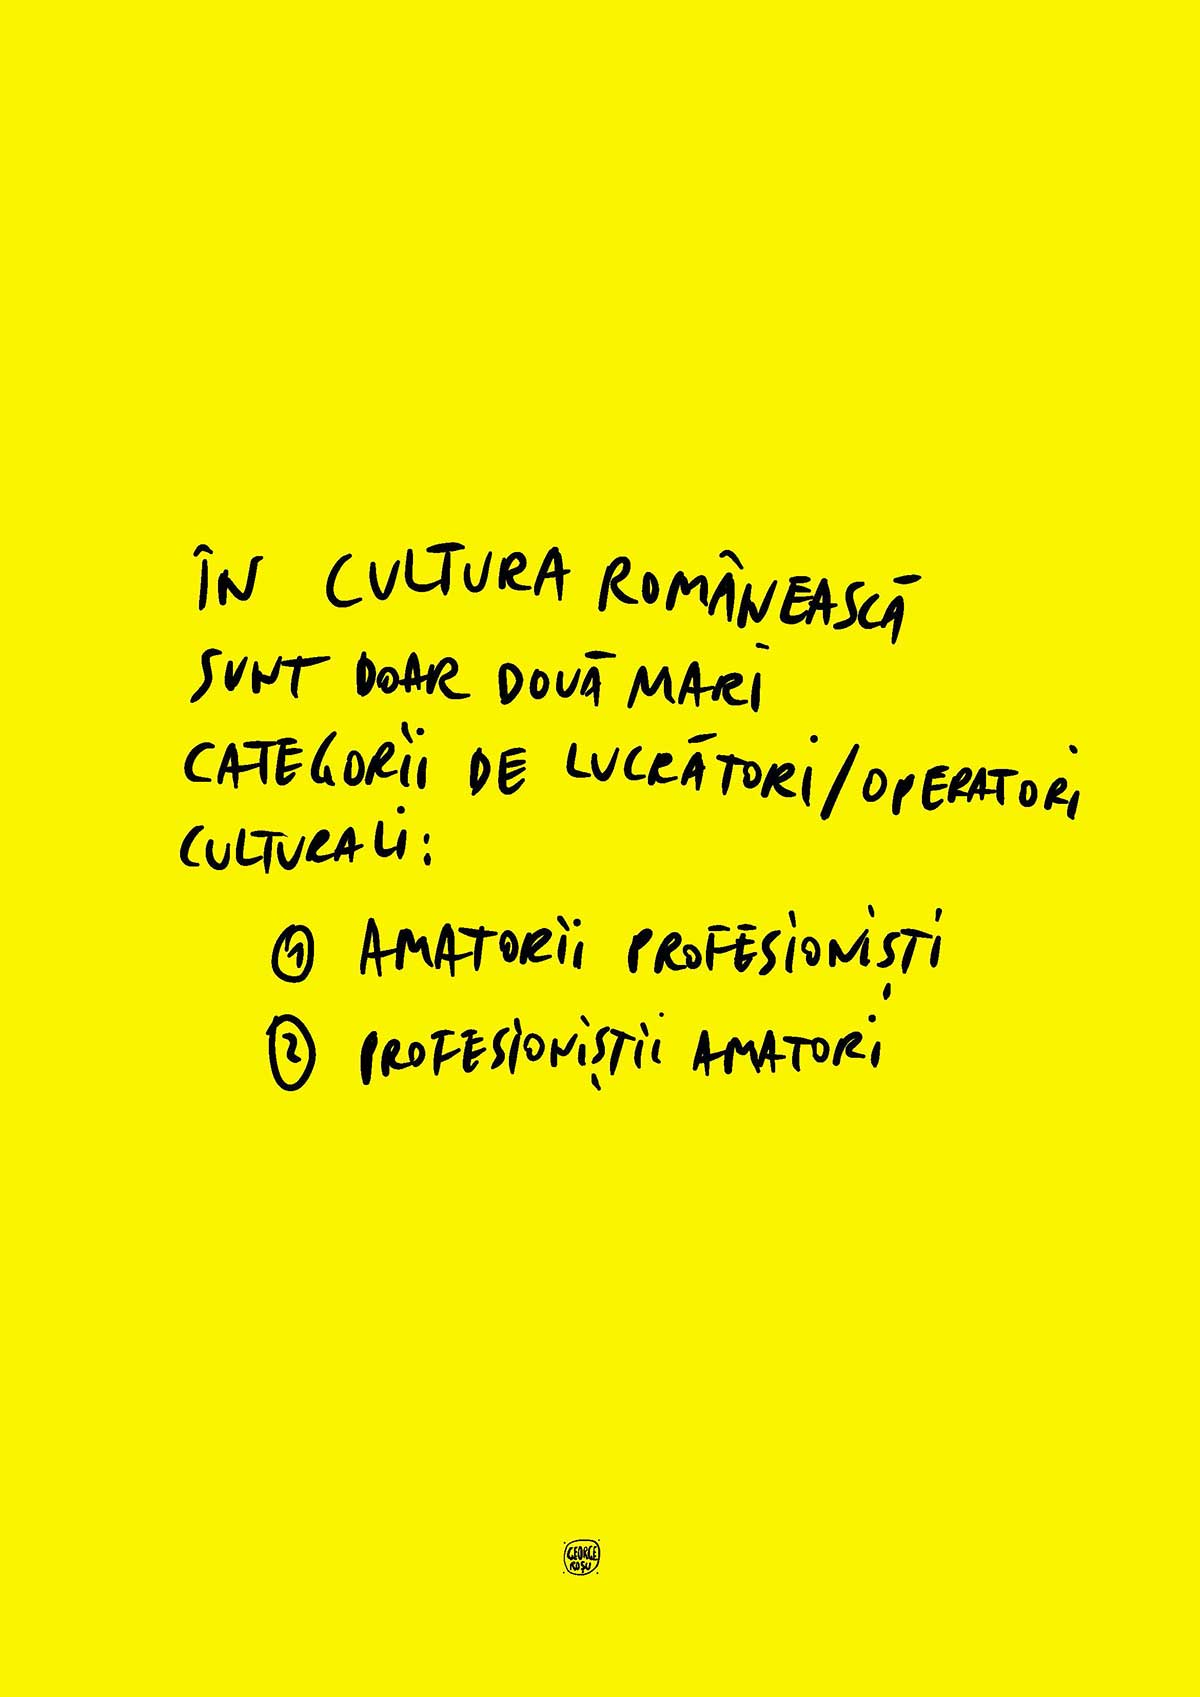 ÎN CULTURA ROMÂNEASCĂ
SUNT DOAR DOUĂ MARI
CATEGORII DE LUCRĂTORI/OPERATORI
CULTURALI:
1 AMATORII PROFESIONIȘTI
2 PROFESIONIȘTII AMATORI
GEORGE
ROȘU